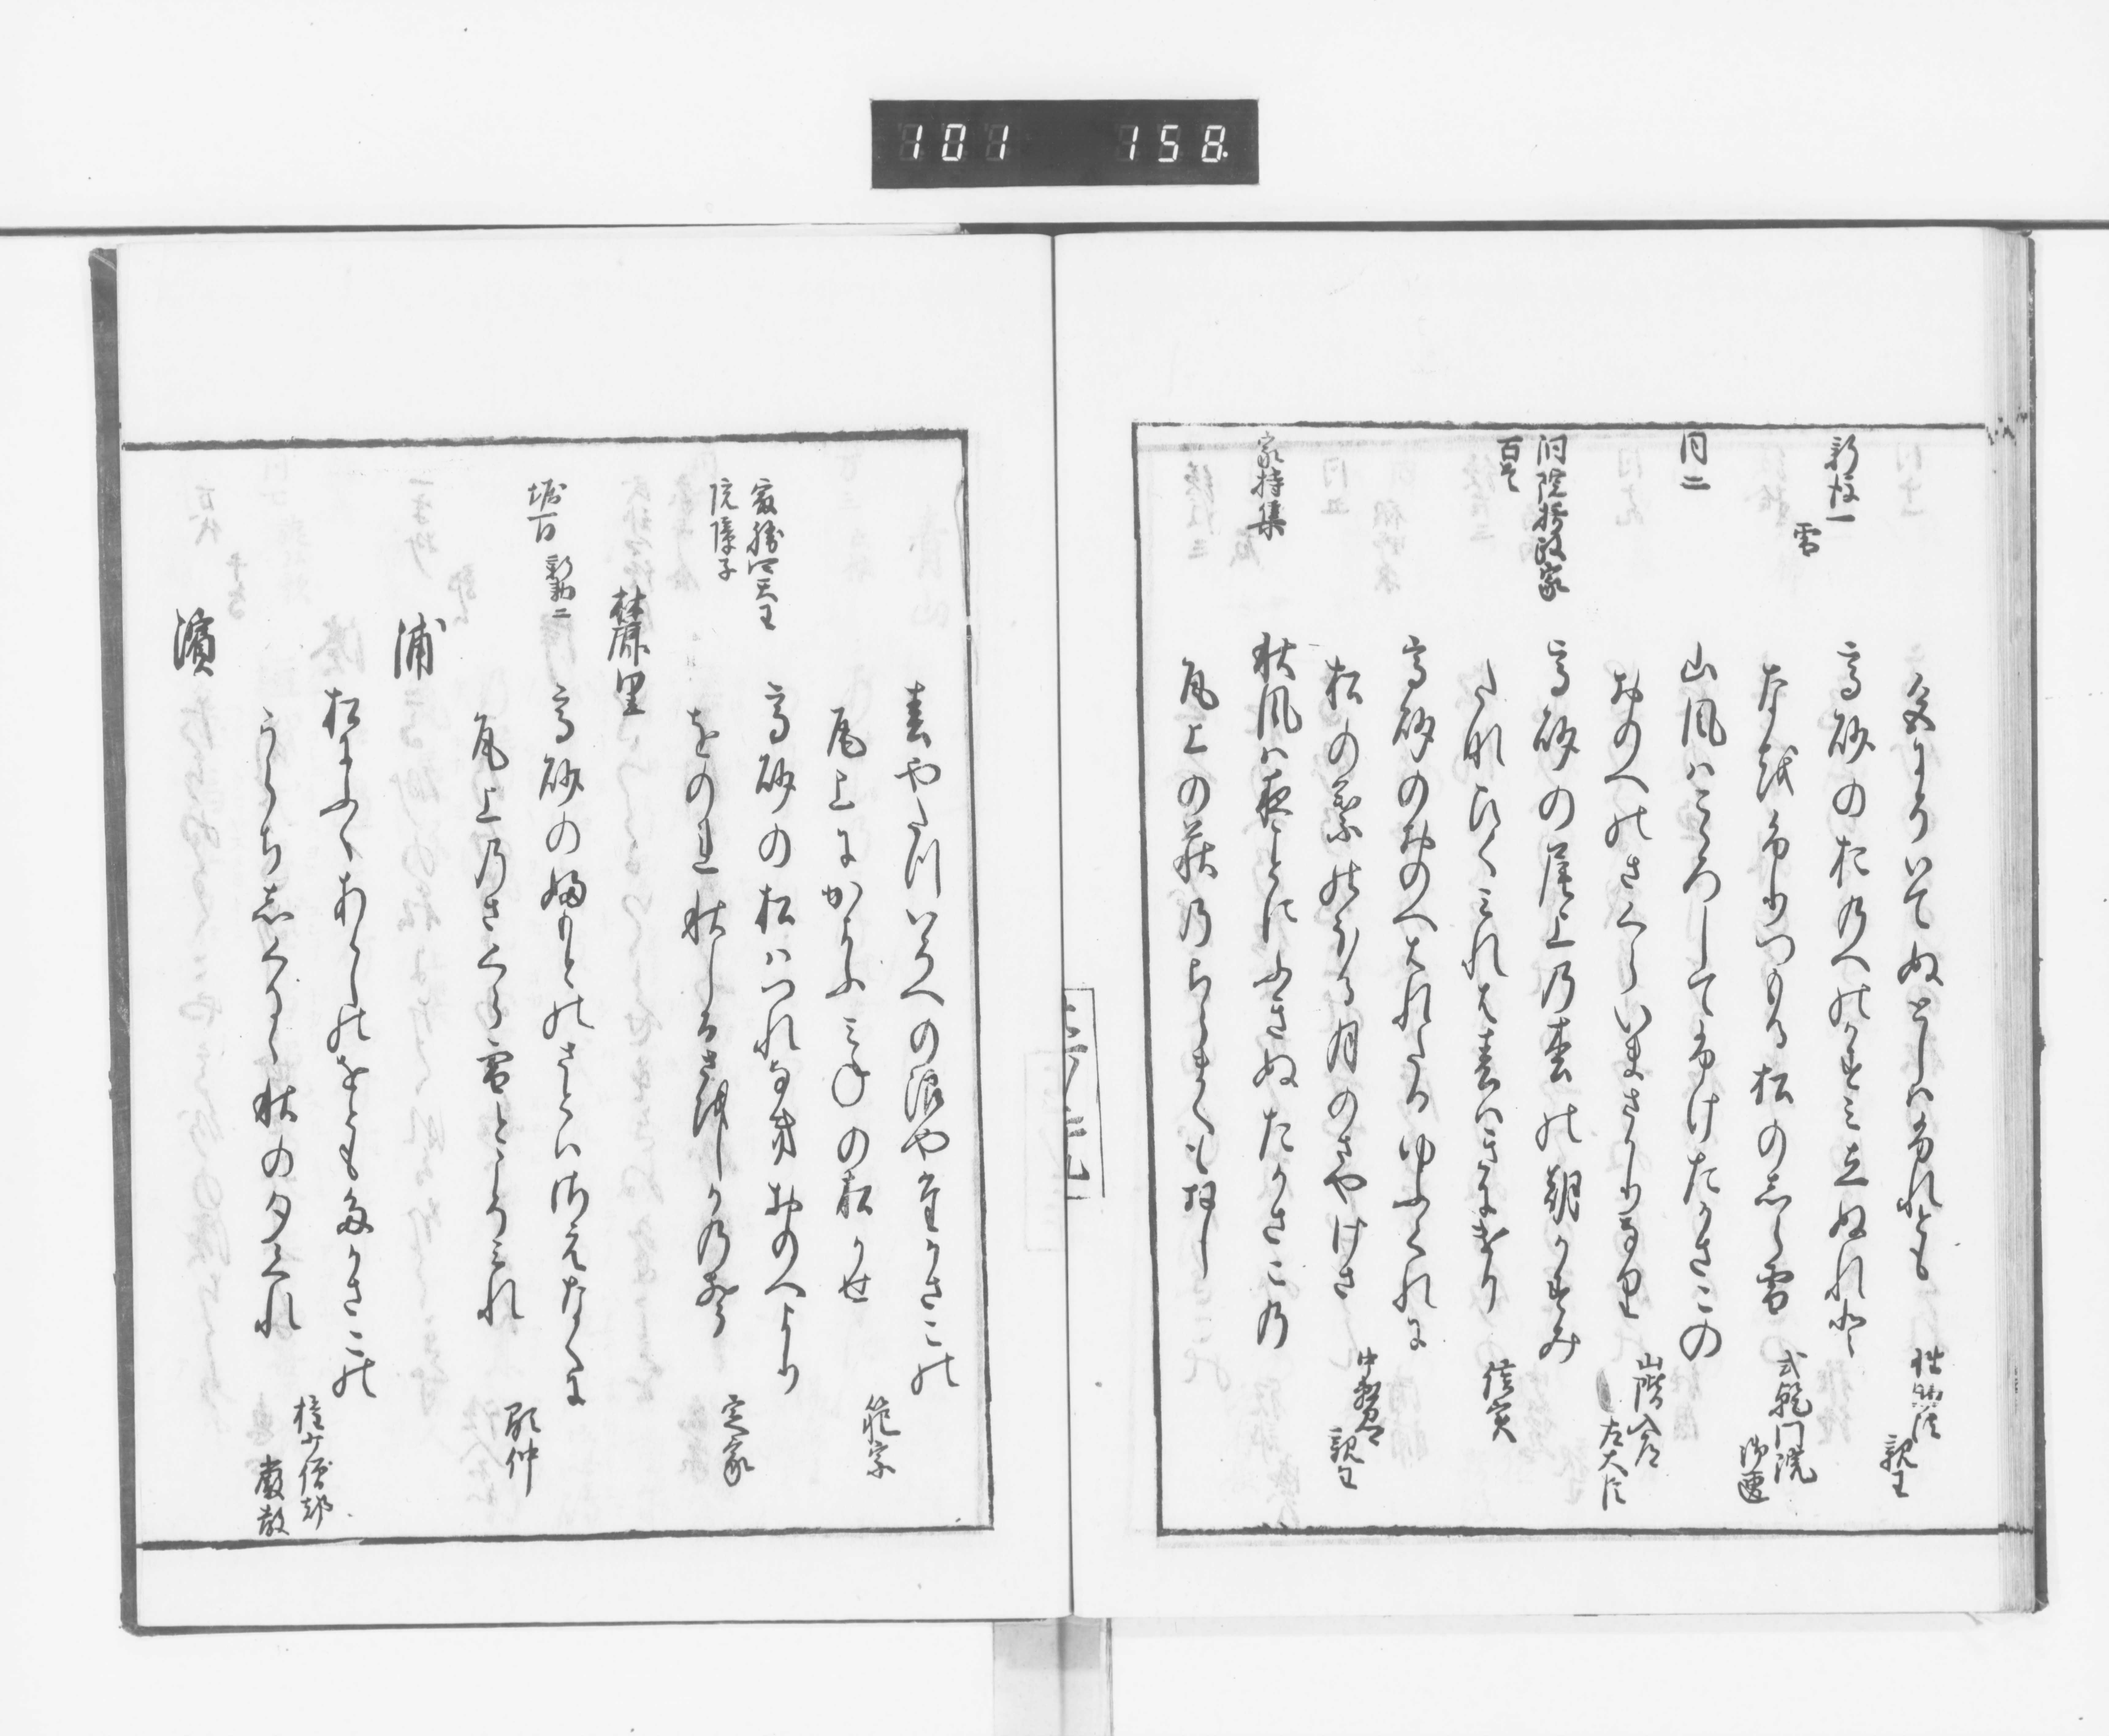 101 158
いてぬとしはふれとも
性助法
親王
新後一
雪
高砂の松のへのかすみ立ぬれと
なをふりつもる松のしら雪
式乾門院
御匣
同二
山風はこころしてふけたかさこの
おのへのさくらいまさかりなり
山階入道
左大臣
洞院摂政家
百首
高砂の尾上の雲の朝かすみ
たなひくみれは春はきにけり
信実
高砂のおのへはれたるゆふくれに
松の葉のほる月のさやけさ
中務卿
親王
家持集
秋風は夜ことにふきぬたかさこの
尾上の萩のちらまくもおし
春やたついくへの浪やたかさこの
尾上にかよふみねの松かせ
範宗
最勝四天王
院障子
高砂の松はつれなきおのへより
をのれ秋しるさをしかの声
定家
麓里
堀百 新勅二
高砂の婦もとのさとはさえなくに
尾上乃さくら雪とこそみれ
顕仲
浦
松にふくあらしのをともたかさこの
うらちしくるる秋の夕くれ
権少僧都
厳教
濱